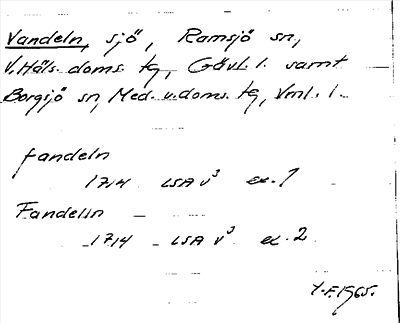 Vandeln, sjö, Ramsjö sn,
V. Häls. doms. tg, Gävl. l. samt
Borgsjö sn, Med. v. doms. tg, Vml. l.
fandeln
1714 LSA V³ ex. 1
Fandelin
1714 LSA V³ ex. 2
1965.